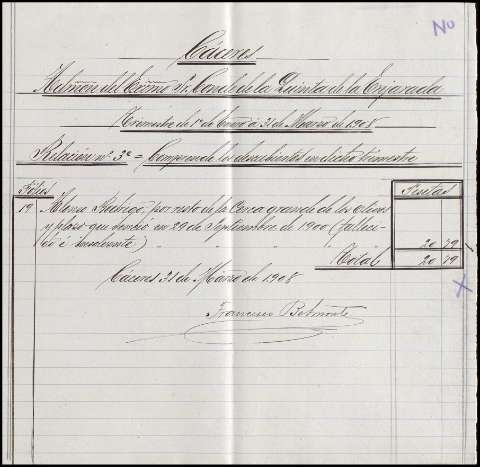 No
Cáceres
Admon del Excmo Sr. Conde de la Quinta de la Enjarada
Trimestre de 1º de Enero á 31 de Marzo de 1908
Relación nº 3º = Comprende los descubiertos en dicho trimestre
Folios
Pesetas
19 Alonso Rodrigo, por resto de la Cerca grande de los Olivos
y plazo que venció en 29 de Septiembre de 1900 (falleci-
do é insolvente) " " " " 20 79
Total 20 79
Cáceres 31 de Marzo de 1908
Francisco Belmonte